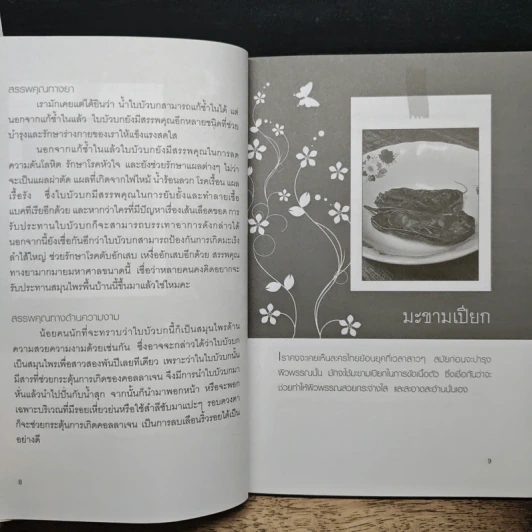 สรรพคุณทางยา
เรามักเคยแต่ได้ยินว่า น้ำใบบัวบกสามารถแก้ช้ำในได้ แต่
นอกจากแก้ช้ำในแล้ว ใบบัวบกยังมีสรรพคุณอีกหลายชนิดที่ช่วย
บำรุงและรักษาร่างกายของเราให้แข็งแรงสดใส
นอกจากแก้ช้ำในแล้วใบบัวบกยังมีสรรพคุณในการลด
ความดันโลหิต รักษาโรคหัวใจ และยังช่วยรักษาแผลต่างๆ ไม่ว่า
จะเป็นแผลผ่าตัด แผลที่เกิดจากไฟไหม้ น้ำร้อนลวก โรคเรื้อน แผล
เรื้อรัง ซึ่งใบบัวบกมีสรรพคุณในการยับยั้งและทำลายเชื้อ
แบคทีเรียอีกด้วย และหากว่าใครที่มีปัญหาเรื่องเส้นเลือดขอด การ
รับประทานใบบัวบกก็จะสามารถบรรเทาอาการดังกล่าวได้
นอกจากนี้ยังเชื่อกันอีกว่าใบบัวบกสามารถป้องกันการเกิดมะเร็ง
ลำไส้ใหญ่ ช่วยรักษาโรคตับอักเสบ เหงือกอักเสบอีกด้วย สรรพคุณ
ทางยามากมายมหาศาลขนาดนี้ เชื่อว่าหลายคนคงคิดอยากจะ
รับประทานสมุนไพรพื้นบ้านนี้ขึ้นมาแล้วใช่ไหมคะ
สรรพคุณทางด้านความงาม
น้อยคนนักที่จะทราบว่าใบบัวบกนี้ก็เป็นสมุนไพรด้าน
ความสวยความงามด้วยเช่นกัน ซึ่งอาจจะกล่าวได้ว่าใบบัวบก
เป็นสมุนไพรเพื่อสาวสองพันปีเลยทีเดียว เพราะว่าในใบบัวบกนั้น
มีสารที่ช่วยกระตุ้นการเกิดของคอลลาเจน จึงมีการนำใบบัวบกมา
หั่นแล้วนำไปปั่นกับน้ำสุก จากนั้นก็นำมาพอกหน้า หรือจะพอก
เฉพาะบริเวณที่มีรอยเหี่ยวย่นหรือใช้สำลีชับมาแปะๆ รอบดวงตา
ก็จะช่วยกระตุ้นการเกิดคอลลาเจน เป็นการลบเลือนริ้วรอยได้เป็น
อย่างดี
8
มะขามเปียก
เราคงจะเคยเห็นละครไทยย้อนยุคที่เวลาสาวๆ สมัยก่อนจะบำรุง
ผิวพรรณนั้น มักจะใช้มะขามเปียกในการขัดเนื้อตัว ซึ่งเชื่อกันว่าจะ
ช่วยทำให้ผิวพรรณสวยกระจ่างใส และสะอาดสะอ้านนั่นเอง
9